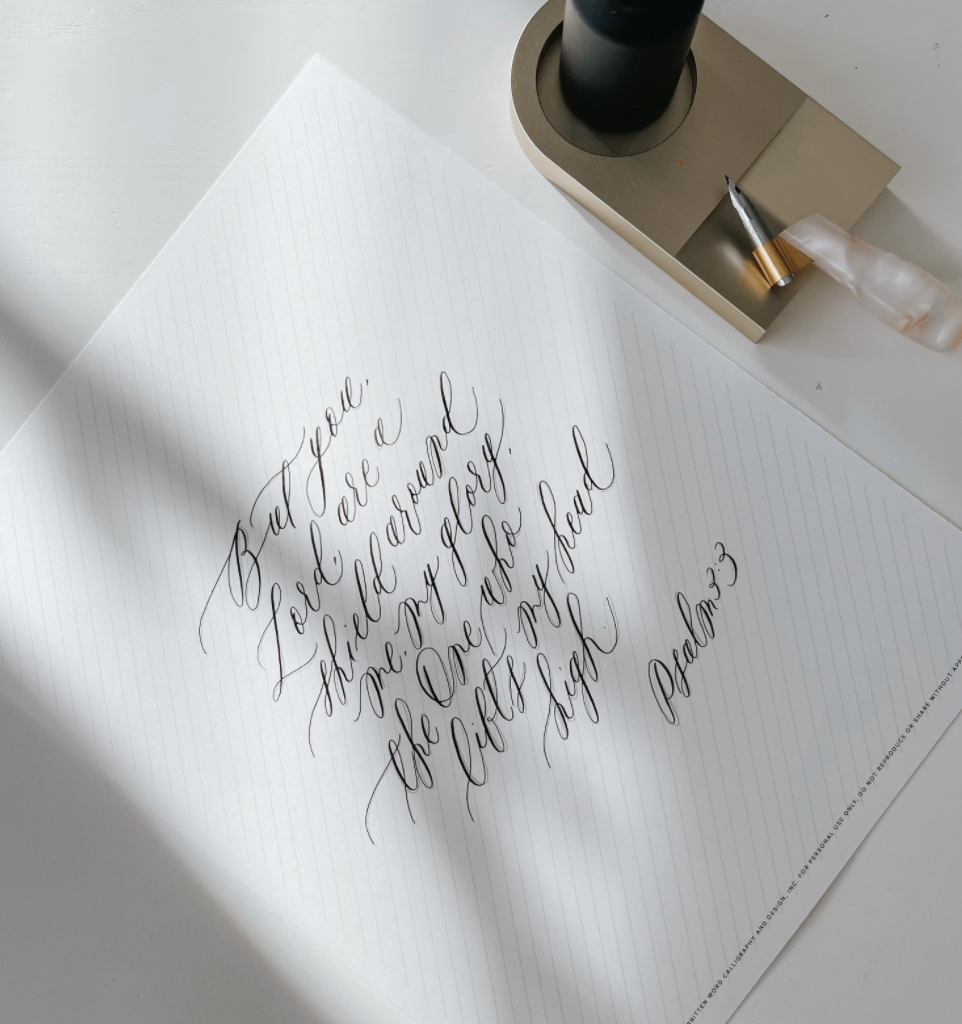 But you,
Lord, are a
shield around
me, my glory,
the One who
lifts my head
high.
Psalm 3:3
WRITTEN WORD CALLIGRAPHY AND DESIGN, INC. FOR PERSONAL USE ONLY, DO NOT REPRODUCE OR SHARE WITHOUT